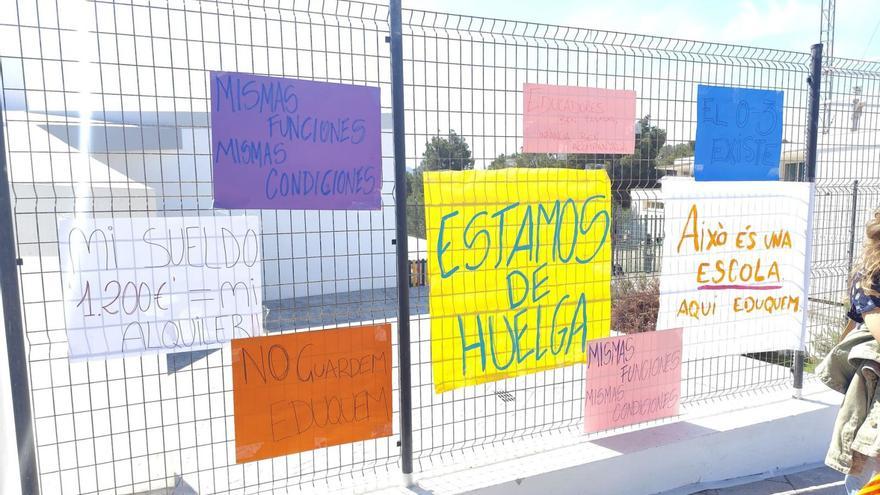 MISMAS
FUNCIONES
MISMAS
CONDICIONES
EDUCADORES
INFANCIA BIEN
ACOMPAÑADA
EL 0-3
EXISTE
Mi SUELDO
1.200€ = Mi
ALQUILER!
ESTAMOS
DE
HUELGA
Això és una
ESCOLA
AQUÍ EDUQUEM
NO GUARDEM
EDUQUEM
MISMAS
FUNCIONES
MISMAS
CONDICIONES